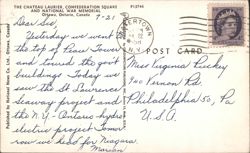 THE CHATEAU LAURIER, CONFEDERATION SQUARE
AND NATIONAL WAR MEMORIAL
Ottawa, Ontario, Canada
P12744
7-21
Dear Sis,
Yesterday we went to
the top of Peace Tower
and toured the gov't
buildings. Today we
saw the St. Lawrence
Seaway project and
the N.Y.-Ontario hydro
electric project. Tomor
row we head for Niagara.
Marian
Published by National News Co. Ltd., Ottawa, Canada
WATERTOWN
N.Y.
POST CARD
Miss Virginia
940 Vernon Rd.
Philadelphia 50, Pa
U.S.A.